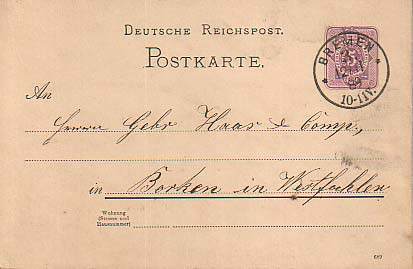 DEUTSCHE REICHSPOST.
POSTKARTE.
BREMEN
10-11V.
An
Herrn Gebr Haas & Comp,
in Borken in Westfahlen
Wohnung
(Strasse und
Hausnummer)